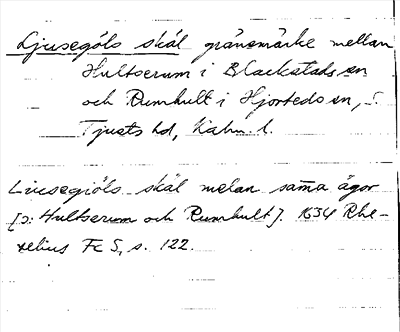 Ljusegöls skäl gränsmärke mellan
Hultserum i Blackstads sn
och Rumhult i Hjorteds sn, S.
Tjusts hd, Kalm. l.
Liusegiöls skäl melan sam̃a ägor
[ɔ: Hultserum och Rumhult]. 1634 Rhe-
zelius Fc 5, s. 122.